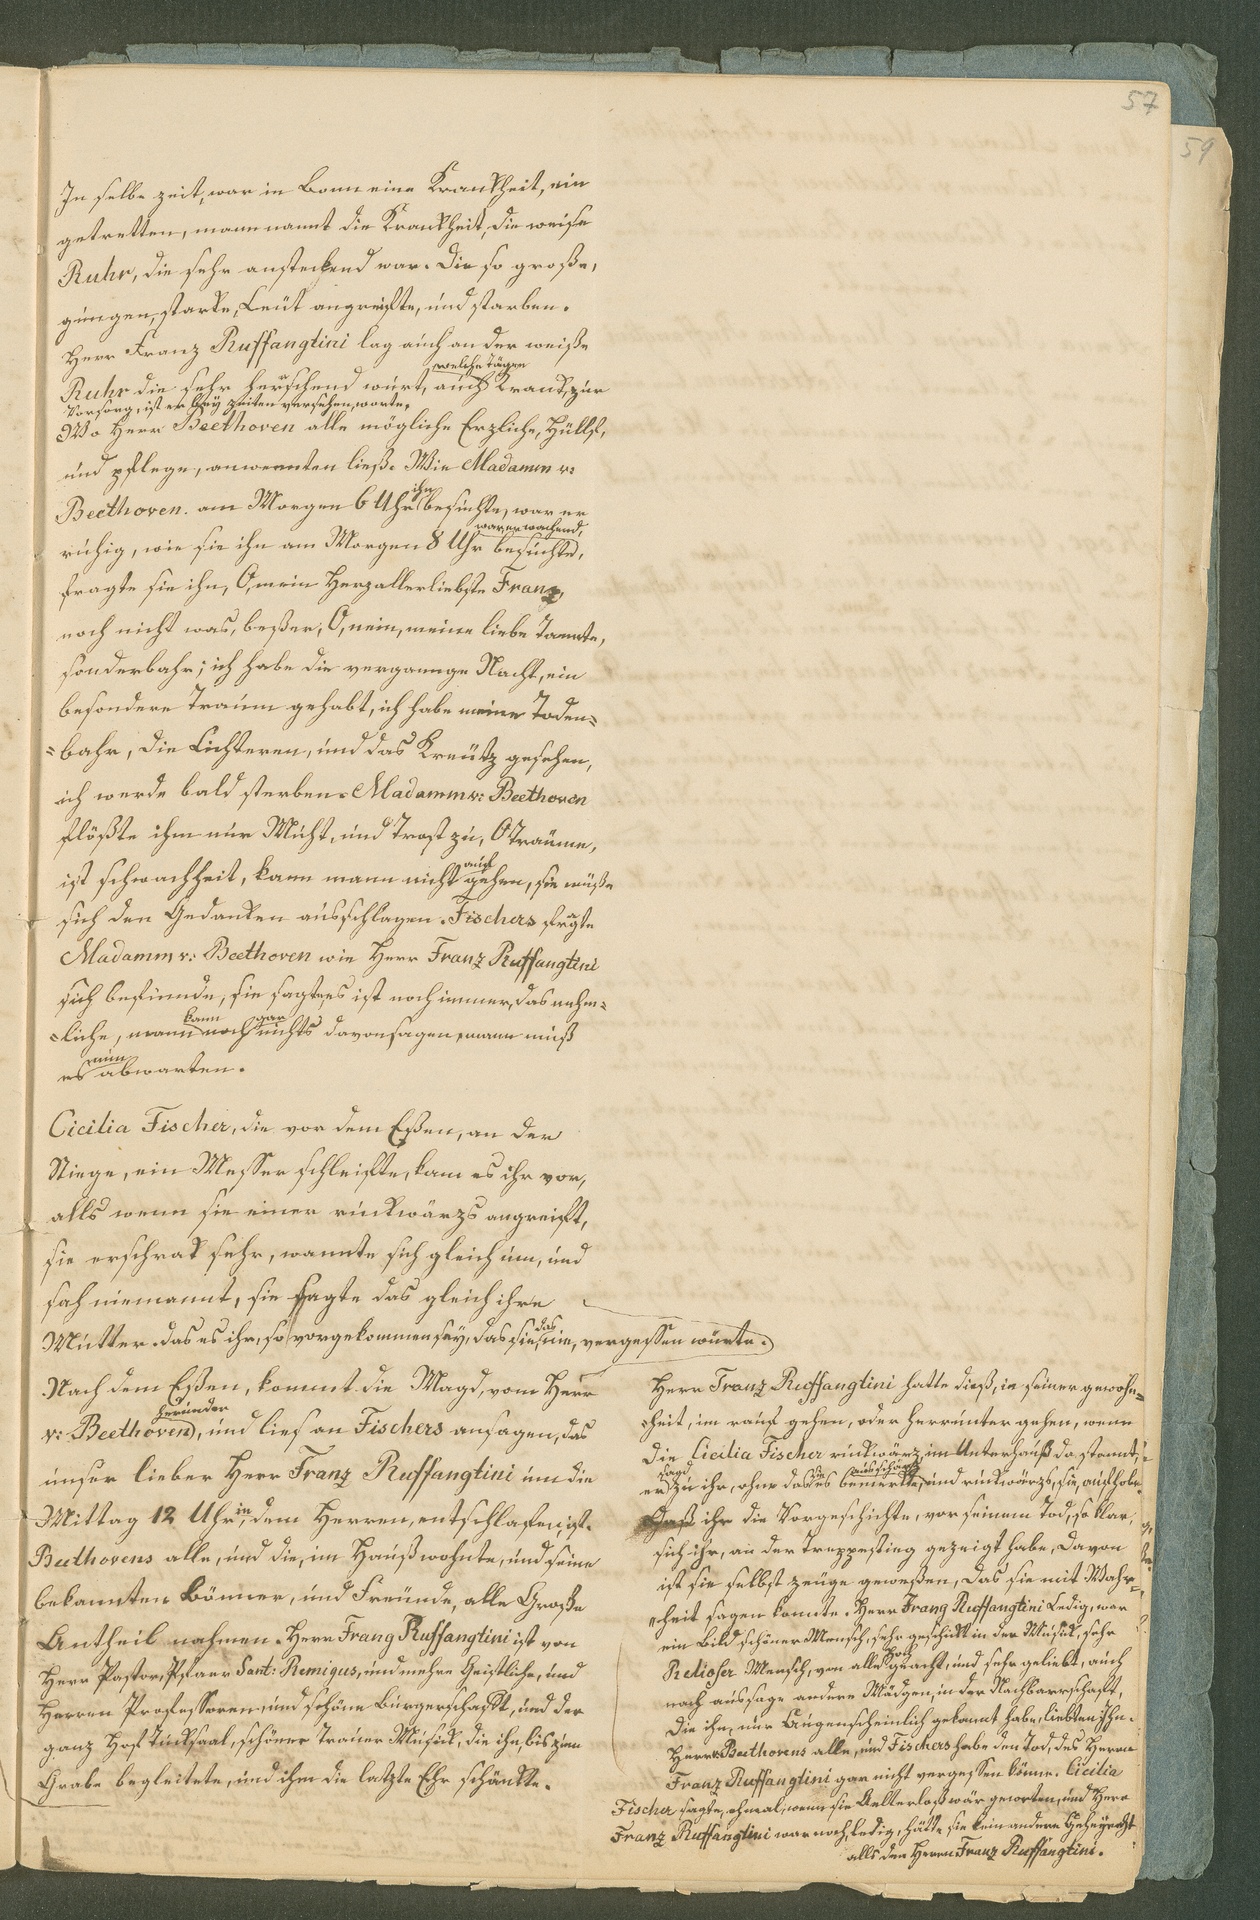 57
59
In selbe zeit, war in Bonn eine Krankheit, ein
getretten, mann nannt die Krankheit, die weise
Ruhr, die sehr ansteckend war. Die so große,
gungen, starke, Leüt angreifte, und starben.
Herr Franz Ruffangtini lag auch an der weiße
welche tägen
Ruhr die sehr herschend wurt, auch Krank, zur
Vorsorg, ist er bey zeiten versehen, worte,
Wo Herr Beethoven alle mögliche Erzliche, Hülf,
und pflege, anwennten ließ. Wie Madamm v:
ihn
Beethoven. am Morgen 6 Uhr besuchte, war er
war er wachend,
ruhig, wie sie ihn am Morgen 8 Uhr besuchte,
fragte sie ihn, O, mein Herzallerliebste Franz,
noch nicht was, beßer, O, nein, meine liebe Tannte,
sonderbahr; ich habe die vergannge Nacht, ein
besondere Traum gehabt, ich habe meine Toden=
=bahr, die Lichteren, und das Kreütz gesehen,
ich werde bald sterben. Madamm v: Beethoven
flößte ihm nur Muht, und Trost zu, O Träume,
auf
ist schwachheit, kann mann nicht gehen, sie müße
sich den Gedanken ausschlagen. Fischers fragte
Madamm v: Beethoven wie Herr Franz Ruffangtini
sich befünde, sie sagte, es ist noch immer, das nehm=
kann gar
=liche, mann noch nichts davon sagen, mann muß
nun
es abwarten.
Cicilia Fischer, die vor dem Eßen, an der
Stiege, ein Messer schleifte, kam es ihr vor,
alls wenn sie einer rückwärzs angreift,
sie erschrak sehr, wannte sich gleich um, und
sah niemannt, sie sagte das gleich ihre
das
Mutter. das es ihr, so vorgekommen sey, das sie, nie, vergessen würte.
Nach dem Eßen, kommt die Magd, vom Herr
herunder
v: Beethoven, und lies an Fischers ansagen, das
unser lieber Herr Franz Ruffangtini um die
in
Mittag 12 Uhr, dem Herren, entschlafen ist.
Beethovens alle, und die, im Hauß wohnte, und seine
bekannten Gönner, und Freünde, alle Große
Antheil nahmen. Herr Frang Ruffangtini ist von
Herr Pastor, Pfaer Sant: Remigus, und mehre Geistliche, und
Herren Professoren, und schöne Bürgerschafft, und der
ganz Hof Tucksaal, schöner Trauer Musick, die ihn, bis zum
Grabe begleitete, und ihm die letzte Ehr schänkte.
Herr Franz Ruffangtini hatte dieß, in seiner gewohn=
=heit, im rauf gehen, oder herrunter gehen, wenn
die Cicilia Fischer rückwärz, im Unterhauß da stannt,
sagd die aus schärz
er zu ihr, ohne das es bemerkte, und rückwärzs, sie, aufhobe.
Daß ihr die Vorgeschichte, vor seinem Tod, so klar,
sich ihr, an der Treppesting gezeigt habe, Davon
ist sie selbst zeüge geweßen, das sie mit Wahr=
=heit sagen konnte. Herr Frang Ruffangtini Ledig, war
ein Bild schöner Mensch, sehr geschickt in der Musick, sehr
hoch
Relioser Mensch, von alle geacht, und sehr geliebt, auch
nach aussage andere Mädgen, in der Nachbarrschaft,
die ihn, nur Augenscheinlich gekannt habe, liebten Ihn.
Herr v: Beethovens alle, und Fischers habe den Tod, des Herrn
Franz Ruffangtini gar nicht vergessen könne. Cicilia
Fischer sagte, ehmal, wenn sie Aelterloß wär geworten, und Herr
Franz Ruffangtini war noch, ledig, hätte sie kein andere Geheyrath
alls den Herrn Franz Ruffangtini.